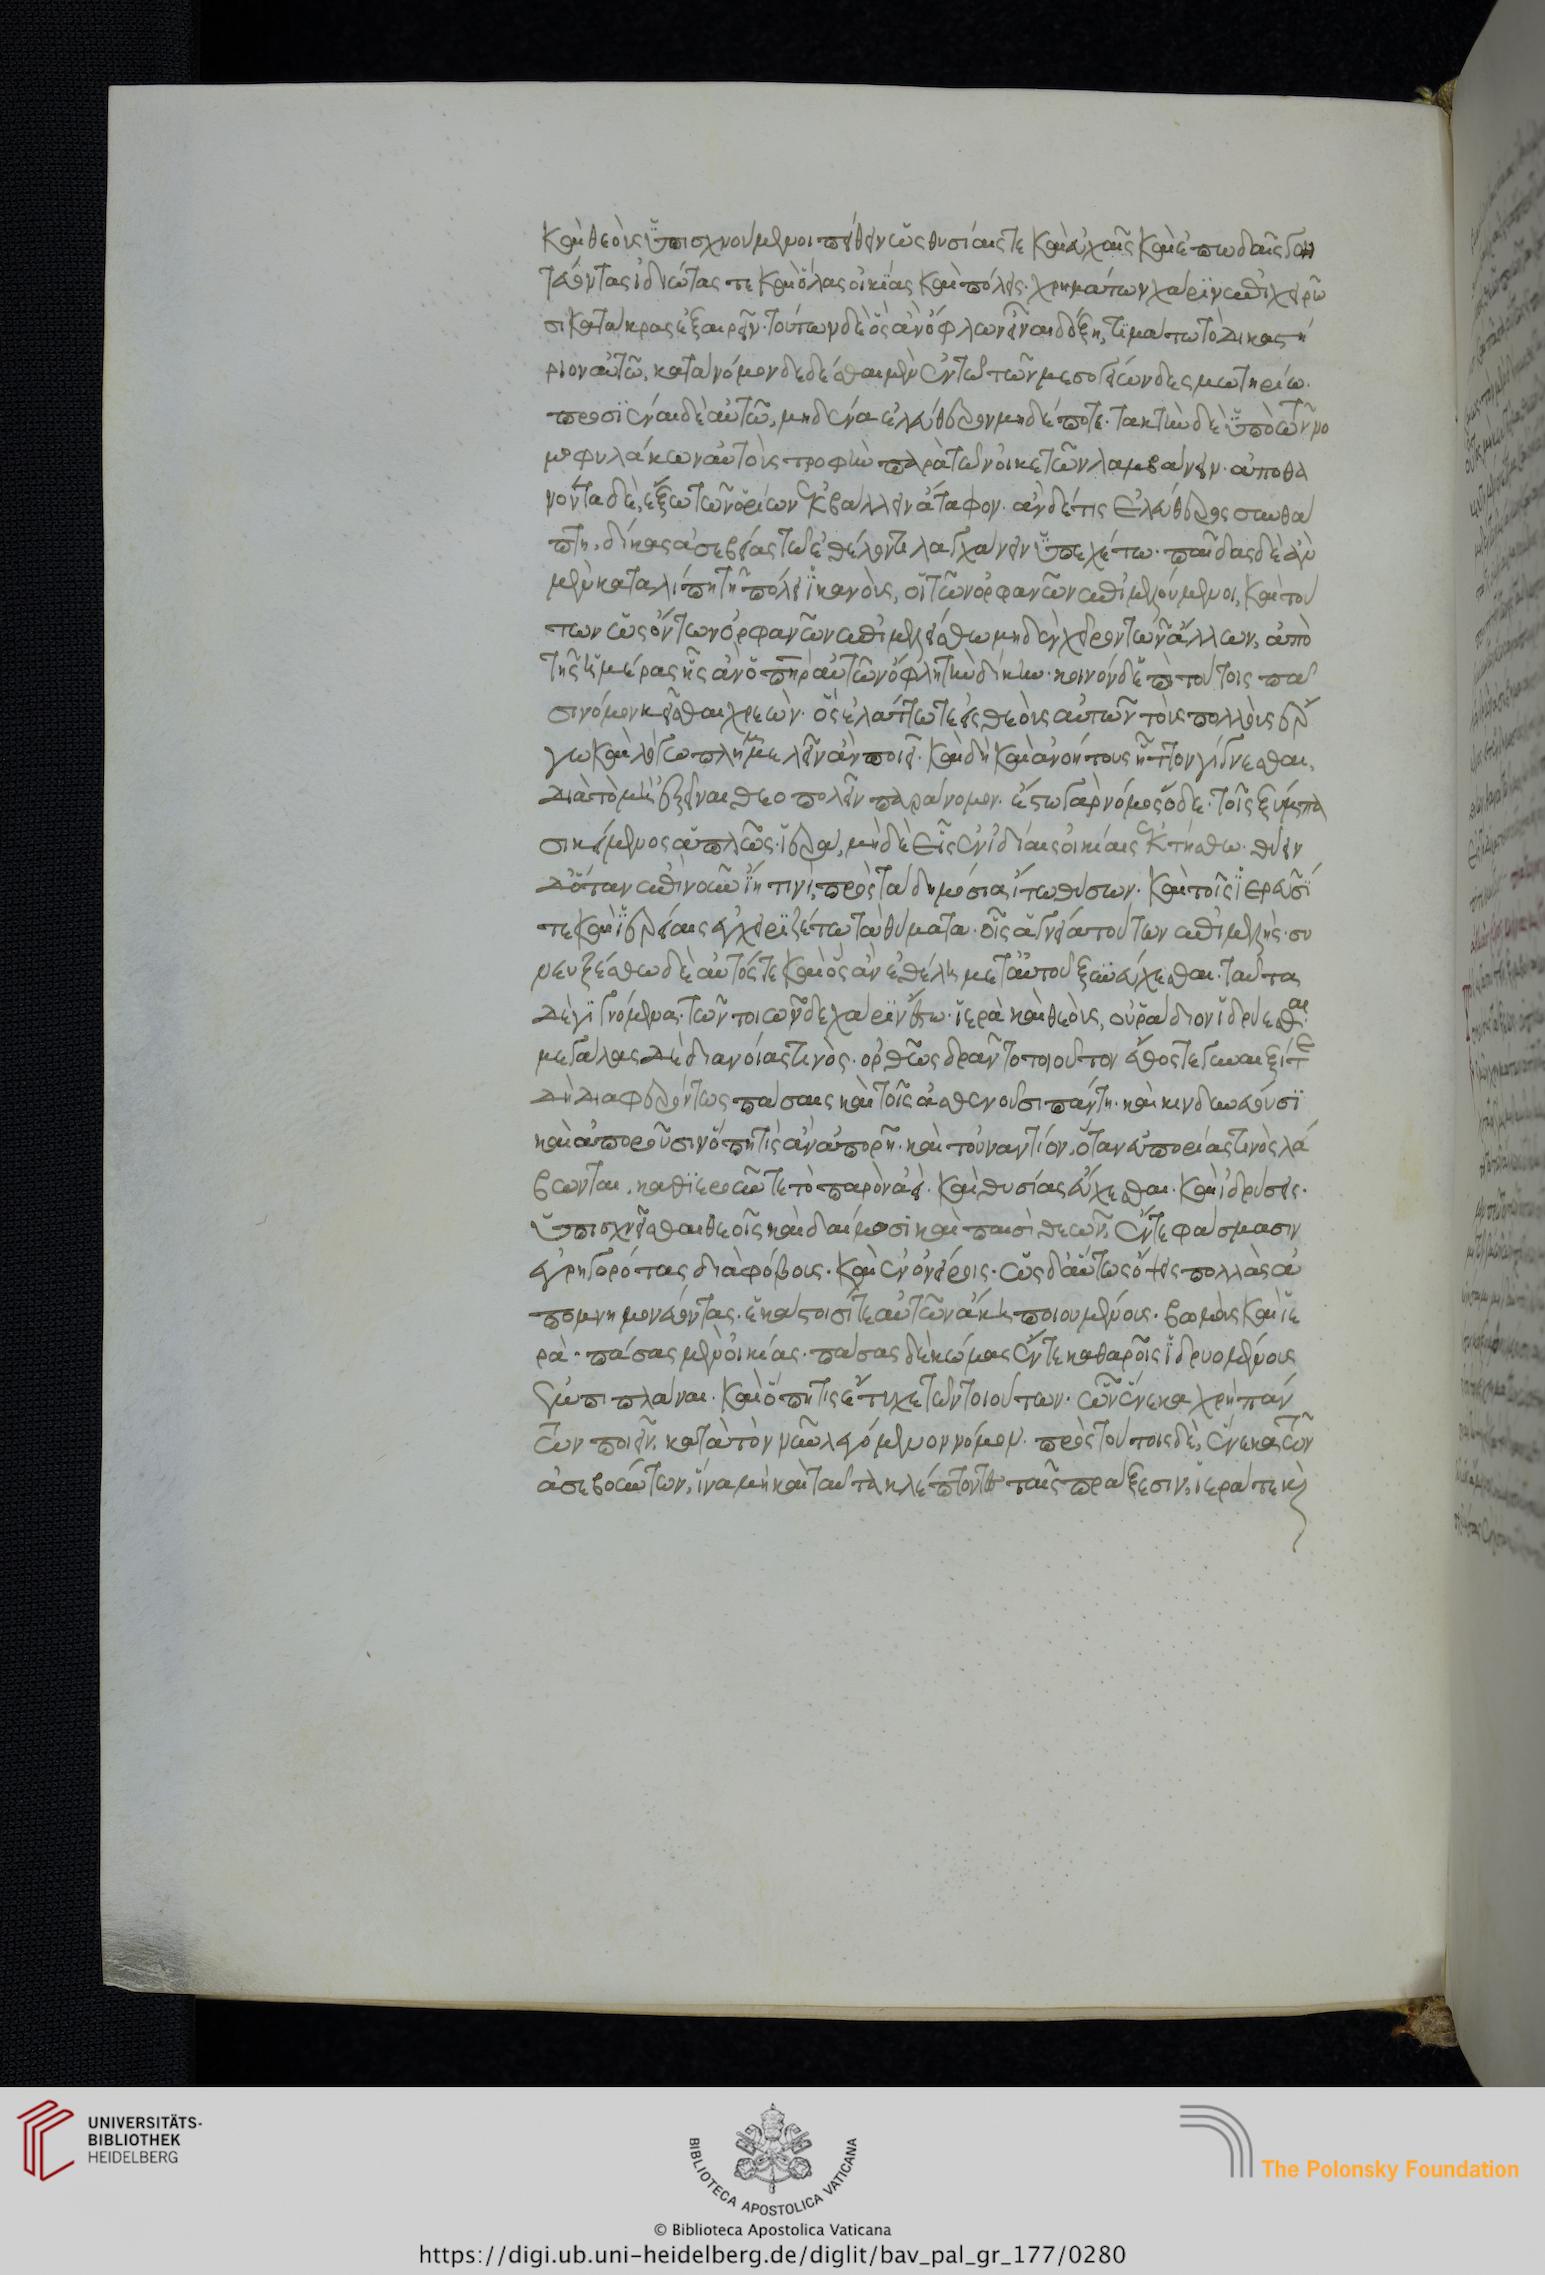 καὶ θεοὺς ὑπισχνούμενοι πείθειν ὡς θυσίαις τε καὶ εὐχαῖς καὶ ἐπωδαῖς γοη
τεύοντας ἰδιώτας τε καὶ ὅλας οἰκίας καὶ πόλεις χρημάτων χάριν ἐπιχειρῶ
σι κατάκρας ἐξαιρεῖν· τούτων δὲ ὃς ἂν ὀφλὼν εἶναι δόξη, τιμάτω τὸ δικαστή
ριον αὐτῶ, κατὰ νόμον δεδέσθαι μὲν ἐν τῶ τῶν μεσογείων δεσμωτηρίω.
προσϊέναι δὲ αὐτῶ, μηδένα ἐλεύθερον μηδέποτε. τακτὴν δὲ ὑπὸ τῶν νο
μοφυλάκων αὐτοὺς τροφὴν παρὰ τῶν οἰκετῶν λαμβάνειν. ἀποθα
νόντα δὲ, ἔξω τῶν ὁρίων ἐκβάλλειν ἄταφον. ἂν δέ τις ἐλεύθερος συνθά
πτη, δίκας ἀσεβείας τῶ ἐθέλοντι λαγχάνειν ὑπεχέτω. παῖδας δὲ ἂν
μὲν καταλίπη τῆ πόλει ἱκανοὺς, οἱ τῶν ὀρφανῶν ἐπιμελούμενοι, καὶ τού
των ὡς ὄντων ὀρφανῶν ἐπιμελείσθων μηδὲν χεῖρον τῶν ἄλλων, ἀπὸ
τῆς ἡμέρας ἧς ἂν ὁ πατὴρ αὐτῶν ὄφλη τὴν δίκην. κοινὸν δ' ἐπὶ τούτοις πᾶ
σι νόμον κεῖσθαι χρεὼν. ὃς ἐλάττω τε εἰς θεοὺς αὐτῶν τοὺς πολλοὺς ἔρ
γω καὶ λόγω πλημμελεῖν ἂν ποιεῖ. καὶ δὴ καὶ ἀνοήτους ἧττον γίγνεσθαι,
διὰ τὸ μὴ ἐξεῖναι θεοπολεῖν παράνομον. ἔστω γὰρ νόμος ὅδε. τοῖς ξύμπα
σι κείμενος ἁπλῶς. ἱερὰ, μὴ δὲ εἷς ἐν ἰδίαις οἰκίαις ἐκτήσθω. θύειν
δ' ὅταν ἐπὶ νοῦν ἴη τινὶ, πρὸς τὰ δημόσια ἴτω θύσων. καὶ τοῖς ἱερεῦσί
τε καὶ ἱερείαις ἐγχειριζέτω τὰ θύματα. οἷς ἁγνεία τούτων ἐπιμελής. συ
νευξέσθω δὲ αὐτός τε καὶ ὃς ἂν ἐθέλη μετ' αὐτοῦ ξυνεύχεσθαι. ταῦτα
δὲ γιγνόμενα. τῶν τοιῶνδε χάριν ἔστω. ἱερὰ καὶ θεοὺς, οὐ ῥάδιον ἱδρύεσθαι.
μεγάλης δὲ διανοίας τινὸς. ὀρθῶς δρᾶν τὸ τοιοῦτον ἔθος τε γυναιξί τε
δὴ διαφερόντως πάσαις καὶ τοῖς ἀσθενοῦσι πάντη. καὶ κινδυνεύουσϊ
καὶ ἀποροῦσιν ὅπη τὶς ἂν ἀπορῆ. καὶ τοὐναντίον, ὅταν εὐπορίας τινὸς λά
βωνται. καθϊεροῦν τε τὸ παρὸν ἀεὶ. καὶ θυσίας εὔχεσθαι. καὶ ἱδρύσεις.
ὑπισχνεῖσθαι θεοῖς καὶ δαίμοσϊ καὶ παισὶ θεῶν. ἔν τε φάσμασιν
ἐγρηγορότας διὰ φόβους. καὶ ἐν ὀνείροις. ὡς δ' αὕτως ὄψεις πολλὰς ἀ
πομνημονεύοντας. ἑκάστοισί τε αὐτῶν ἄκη ποιουμένους. βωμοὺς καὶ ἱε
ρὰ. πάσας μὲν οἰκίας. πάσας δὲ κώμας ἔν τε καθαροῖς ἱδρυομένους
ἐμπιπλάναι. καὶ ὅπη τις ἔτυχε τῶν τοιούτων. ὧν ἕνεκα χρὴ πάν
των ποιεῖν, κατὰ τὸν νῦν λεγόμενον νόμον. πρὸς τούτοις δὲ, ἕνεκα τῶν
ἀσεβούντων, ἵνα μὴ καὶ ταῦτα κλέπτοντες ταῖς πράξεσιν, ἱερά τε καὶ
UNIVERSITÄTS-
BIBLIOTHEK
HEIDELBERG
BIBLIOTECA APOSTOLICA VATICANA
The Polonsky Foundation
© Biblioteca Apostolica Vaticana
https://digi.ub.uni-heidelberg.de/diglit/bav_pal_gr_177/0280